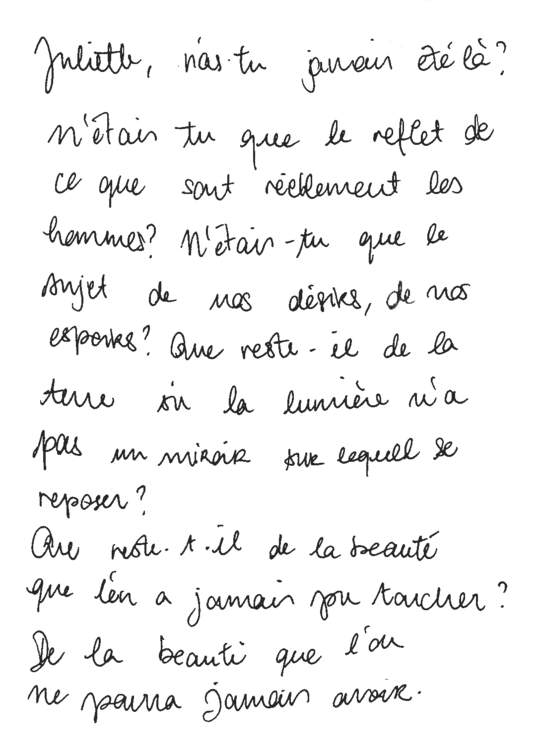 Juliette, n'as-tu jamais été là?
N'étais tu que le reflet de
ce que sont réellement les
hommes? N'étais-tu que le
sujet de nos désirs, de nos
espoirs? Que reste-il de la
terre si la lumière n'a
pas un miroir sur lequell se
reposer?
Que reste-t-il de la beauté
que l'on a jamais pu toucher?
De la beauté que l'on
ne pourra jamais avoir.